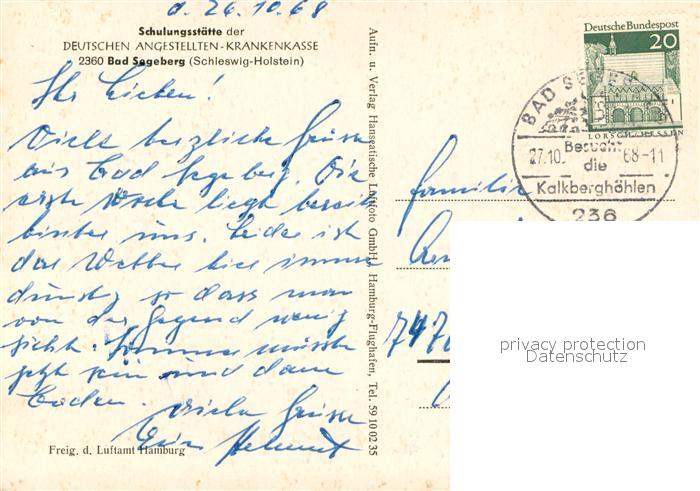 d. 26.10.68
Schulungsstätte der
DEUTSCHEN ANGESTELLTEN-KRANKENKASSE
2360 Bad Segeberg (Schleswig-Holstein)
Ihr Lieben!
Viele herzliche Grüsse
aus Bad Segeberg. Die
erste Woche liegt bereits
hinter uns. Leider ist
das Wetter hier immer
dunstig so dass man
von der Gegend wenig
sieht. Sommer müsste
jetzt sein und dann
baden.
Viele Grüsse
Euer Helmut
Freig. d. Luftamt Hamburg
Aufn. u. Verlag Hanseatische Luftfoto GmbH. Hamburg-Flughafen, Tel. 59 10 02 35
Deutsche Bundespost
20
LORSCH/HESSEN
BAD SEGEBERG
27.10. 68-11
Besucht
die
Kalkberghöhlen
236
Familie
privacy protection
Datenschutz